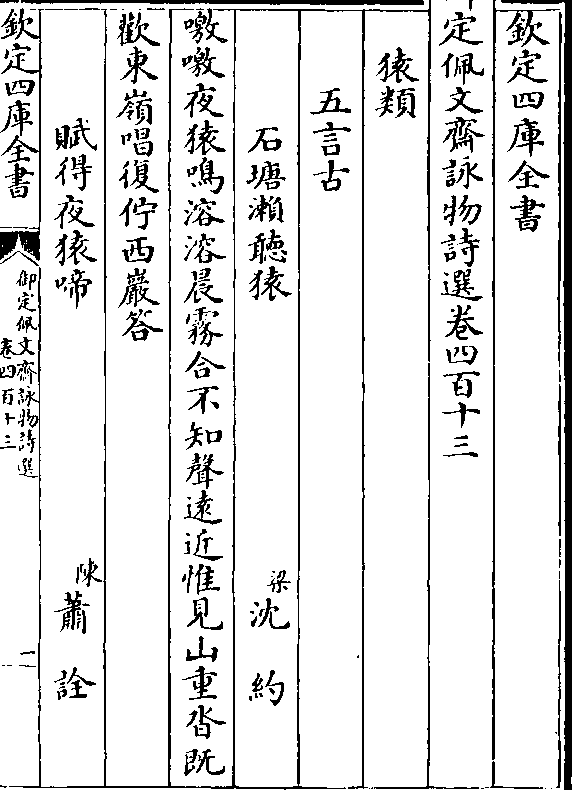 欽定四庫全書
定佩文齋詠物詩選卷四百十三
猿類
五言古
石塘瀨聽猿 梁 沈約
噭噭夜猿鳴溶溶晨霧合不知聲遠近惟見山重沓既
歡東嶺唱復佇西巖答
賦得夜猿啼 陳 蕭詮
欽定四庫全書
御定佩文齋詠物詩選
卷四百十三
一